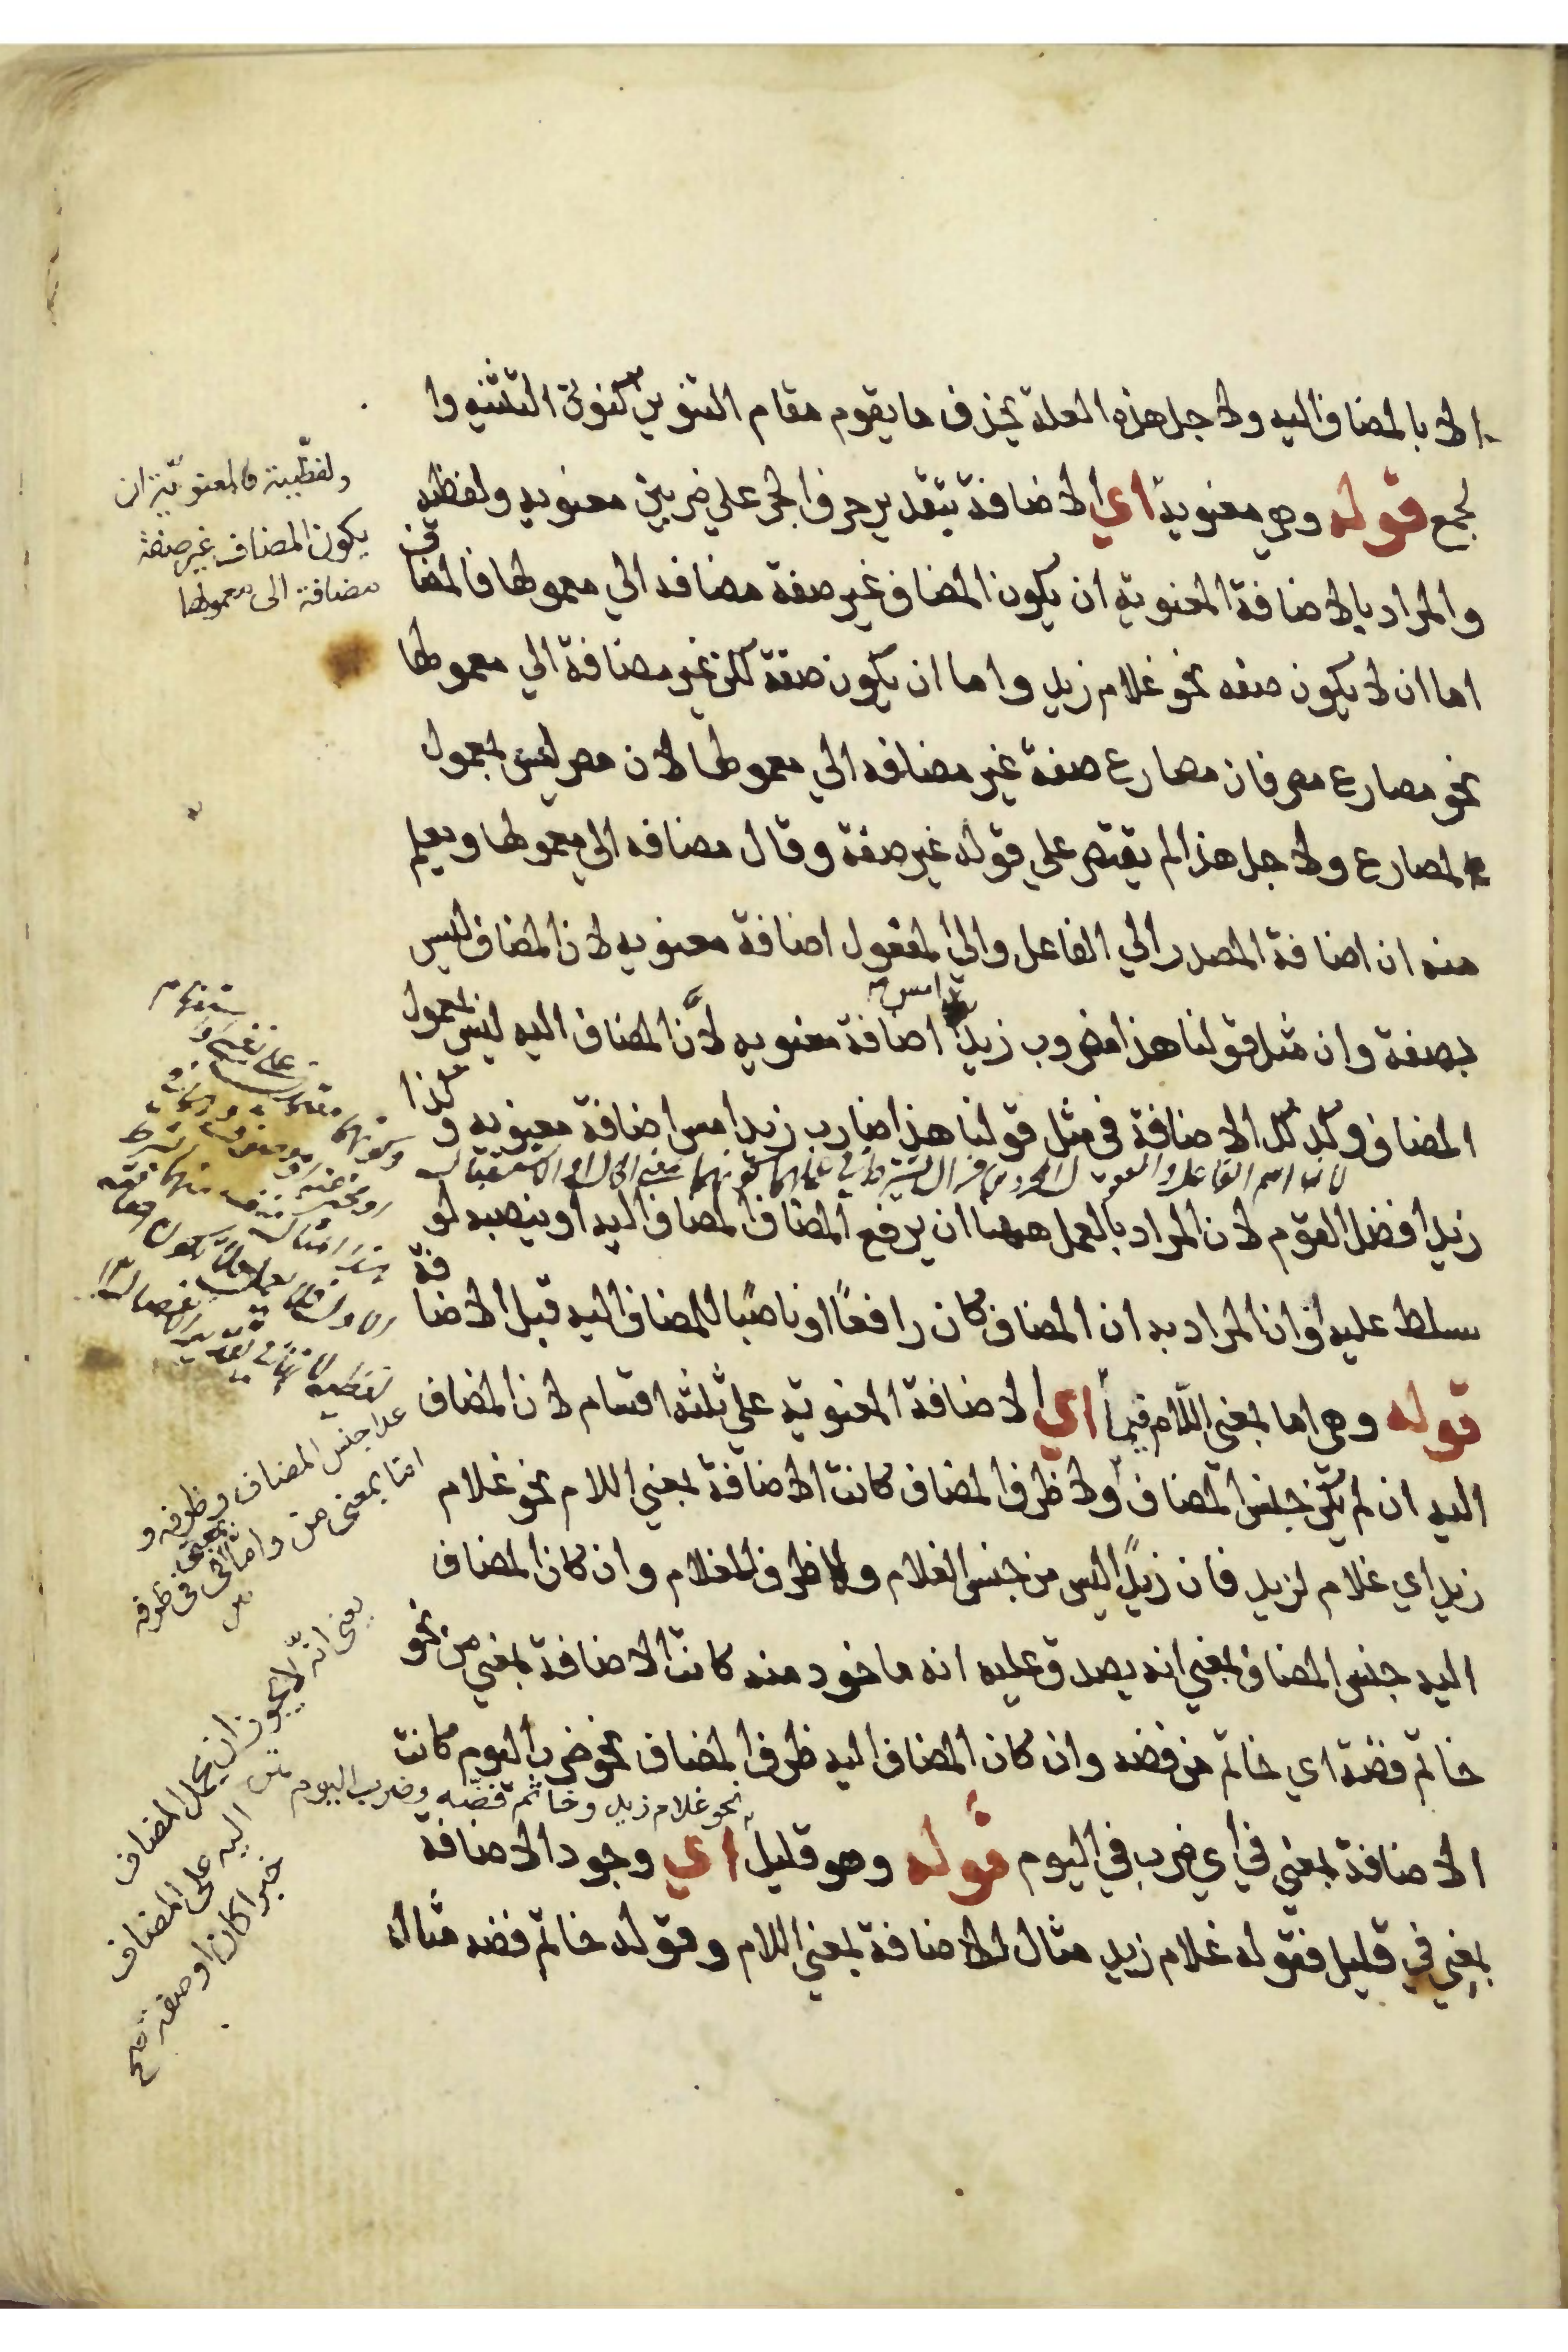 الا بالمضاف اليه ولاجل هذه العلة يحذف ما يقوم مقام التنوين كنون التثنيه وا
لجمع قوله وهي معنوية اي الاضافة بتقدير حرف الجر علي ضربين معنويه ولفظيه
والمراد بالاضافة المعنوية ان يكون المضاف غير صفة مضافه الي معمولها فالمضاف
اما ان لا يكون صفه نحو غلام زيد واما ان يكون صفة لكن غير مضافة الي معمولها
نحو مصارع مصر فان مصارع صفة غير مضافه الي معمولها لان مصر ليس بمعمول
لمصارع ولاجل هذا لم يقتصر علي قوله غير صفة وقال مضافه الي معمولها ويعلم
منه ان اضافة المصدر الي الفاعل والي المفعول اضافة معنويه لان المضاف ليس
بصفة وان مثل قولنا هذا مضروب زيد امس اضافة معنويه لأن المضاف اليه ليس بمعمول
المضاف وكذلك الاضافة في مثل قولنا هذا ضارب زيد امس اضافة معنويه وكذا
لان اسم الفاعل والمفعول
زيد افضل القوم لان المراد بالعمل ههنا ان يرفع المضاف المضاف اليه او ينصبه لو
سلط عليه او ان المراد به ان المضاف كان رافعًا او ناصبًا للمضاف اليه قبل الاضافة
قوله وهي اما بمعني اللام فيما اي الاضافة المعنوية علي ثلثة اقسام لان المضاف
اليه ان لم يكن جنس المضاف ولا ظرف المضاف كانت الاضافة بمعني اللام نحو غلام
زيد اي غلام لزيد فان زيدًا ليس من جنس الغلام ولا ظرف للغلام وان كان المضاف
اليه جنس المضاف بمعني انه يصدق عليه انه ماخود منه كانت الاضافة بمعني من نحو
خاتم فضة اي خاتم من فضه وان كان المضاف اليه ظرف المضاف نحو ضرب اليوم كانت
نحو غلام زيد وخاتم فضه وضرب اليوم
الاضافة بمعني في اي ضرب في اليوم قوله وهو قليل اي وجود الاضافة
بمعني في قليل فقوله غلام زيد مثال للاضافة بمعني اللام وقوله خاتم فضه مثال
ولفظيية فالمعنويّة ان
يكون المضاف غير صفة
مضافة الى معمولها
عدا جنس المضاف وظرفه و
امّا بمعنى من واما بمعنى فى فى ظرفه
يعنى انّه لا يجوز ان يحمل المضاف
اليه على المضاف
خبرا كان او صفة صح